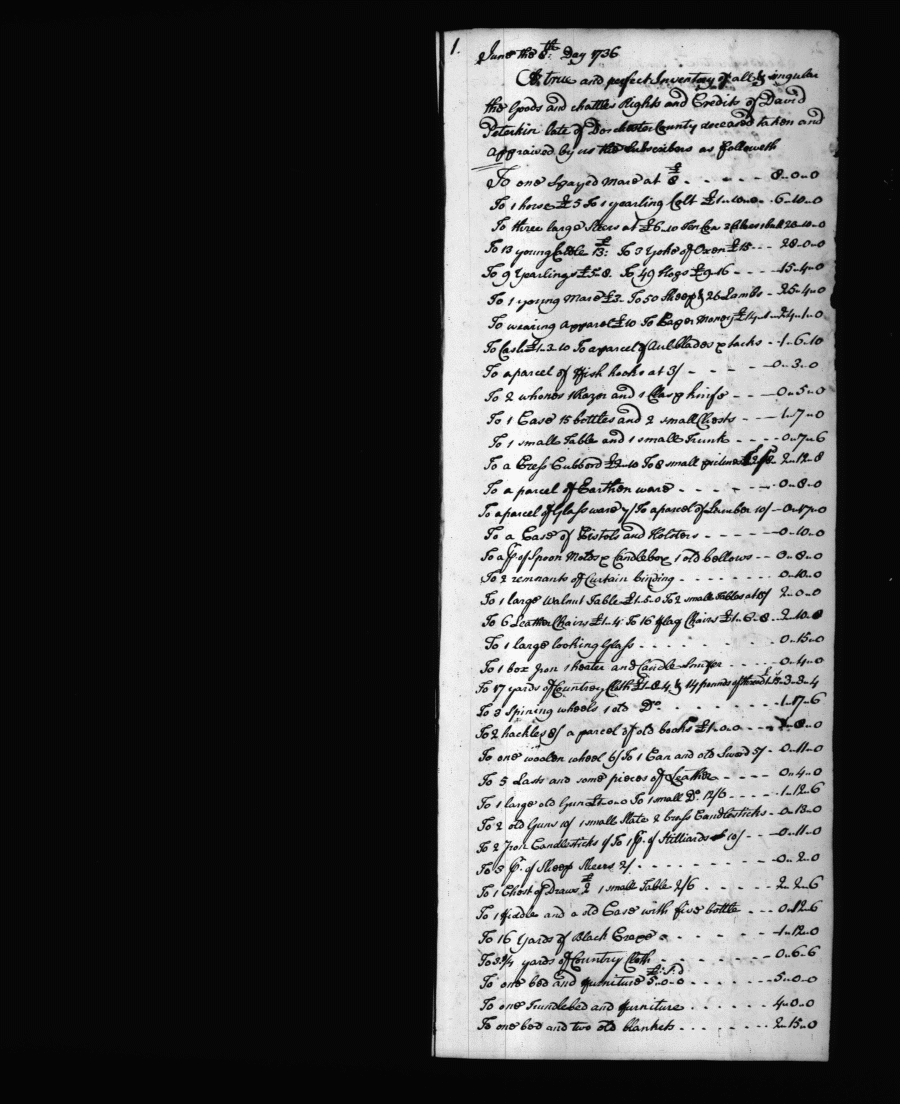 1.
June the 8th: Day 1736
A true and perfect Inventory of all & singular
the Goods and chattles Rights and Credits of David
Peterkin late of Dorchester County deceased taken and
appraised by us the Subscribers as followeth
To one Spayed Mare at £8 - - - - - 8..0..0
To 1 horse £5 To 1 yearling Colt £1..10..0 - 6..10..0
To three large Steers at £6..10 20..10..0
To 13 young Cattle £13: To 3 Yoke of Oxen £15 - - 28..0..0
To 9 Yearlings £5..8. To 49 Hogs £9..16 - - - 15..4..0
To 1 young Mare £3. To 50 Sheep & 26 Lambs - 25..4..0
To wearing apparel £10 To Paper Money £14..1 - 24..1..0
To Cash £1..3..10 To a parcel of Aul blades & tacks - 1..6..10
To a parcel of ffish hooks at 3/ - - - - - 0..3..0
To 2 whones 1 Razor and 1 Clasp knife - - - 0..5..0
To 1 Case 15 bottles and 2 small Chests - - - 1..7..0
To 1 small Table and 1 small Trunk - - - - 0..7..6
To a Press Cubbord £2..10 To 8 small pictures 2..12..8
To a parcel of Earthen ware - - - - - 0..8..0
To a parcel of Glass ware 7/ To a parcel of Lumber 10/ - 0..17..0
To a Case of Pistols and Holsters - - - - - 0..10..0
To a Pr. of Spoon Molds & Candlebox 1 old bellows - - 0..8..0
To 2 remnants of Curtain binding - - - - - - 0..10..0
To 1 large Walnut Table £1..5..0 To 2 small Tables at 15/ 2..0..0
To 6 Leather Chairs £1..4: To 16 fflag Chairs £1..6..8.. 2..10..8
To 1 large looking Glass - - - - - - 0..15..0
To 1 box Iron 1 heater and Candle-Snuffer - - - - 0..4..0
To 17 yards of Country Cloth £1..8..4 & 14 pounds of thread 3..3..4
To 3 Spining wheels 1 old Do. - - - - - - 1..17..6
To 2 hackles 8/ a parcel of old books £1..0..0 - - - 1..8..0
To one woolen wheel 6/ To 1 Can and old Sword 5/ - 0..11..0
To 5 Lasts and some pieces of Leather - - - - 0..4..0
To 1 large old Gun £1..0..0 To 1 small Do. 12/6 - - - - 1..12..6
To 2 old Guns 10/ 1 small Slate 2 brass Candlesticks - 0..13..0
To 2 Iron Candlesticks 1/ To 1 Pr. of Stilliards 10/ - - 0..11..0
To 3 Pr. of Sheep Sheers 2/ - - - - - - - 0..2..0
To 1 Chest of Draws £2 1 small Table 2/6 - - - - - 2..2..6
To 1 ffiddle and a old Case with five bottle - - - 0..12..6
To 16 Yards of Black Crape - - - - - - 1..12..0
To 3 3/4 yards of Country Cloth - - - - - - 0..6..6
To one bed and ffurniture £5..0..0 - - - - - - 5..0..0
To one Trundlebed and ffurniture - - - - - - 4..0..0
To one bed and two old blankets - - - - - - 2..15..0